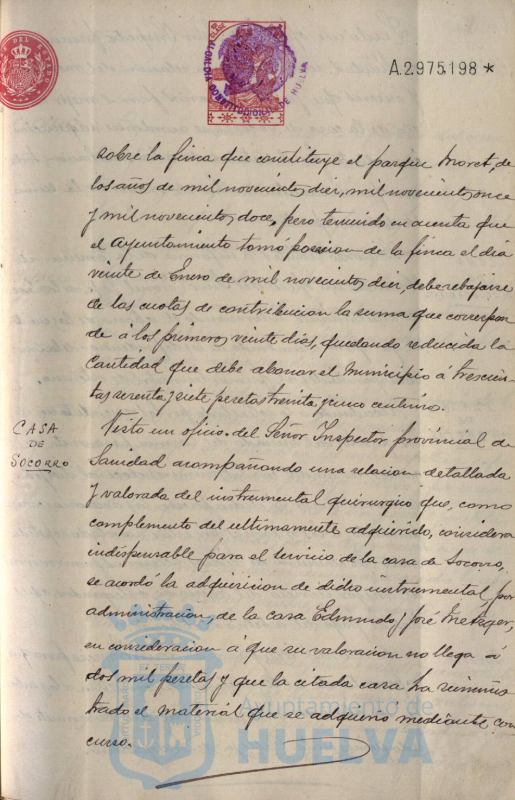 A.2.975.198 *
sobre la finca que constituye el parque Moret, de
los años de mil novecientos diez, mil novecientos once
y mil novecientos doce, pero teniendo en cuenta que
el Ayuntamiento tomó posesion de la finca el día
veinte de Enero de mil novecientos diez, debe rebajarse
de las cuotas de contribucion la suma que correspon
de á los primeros veinte dias, quedando reducida la
cantidad que debe abonar el Municipio á trescien
tas setenta y siete pesetas treinta y cinco centimos.
CASA
DE
SOCORRO
Visto un oficio del Señor Inspector provincial de
Sanidad acompañando una relacion detallada
y valorada del instrumental quirurgico que, como
complemento del ultimamente adquirido, considera
indispensable para el servicio de la casa de Socorro,
se acordó la adquisicion de dicho instrumental, por
administracion, de la casa Edmundo y José Metzger,
en consideracion á que su valoracion no llega á
dos mil pesetas y que la citada casa ha suminis
trado el material que se adquirió mediante con
curso.
Ayuntamiento de
HUELVA